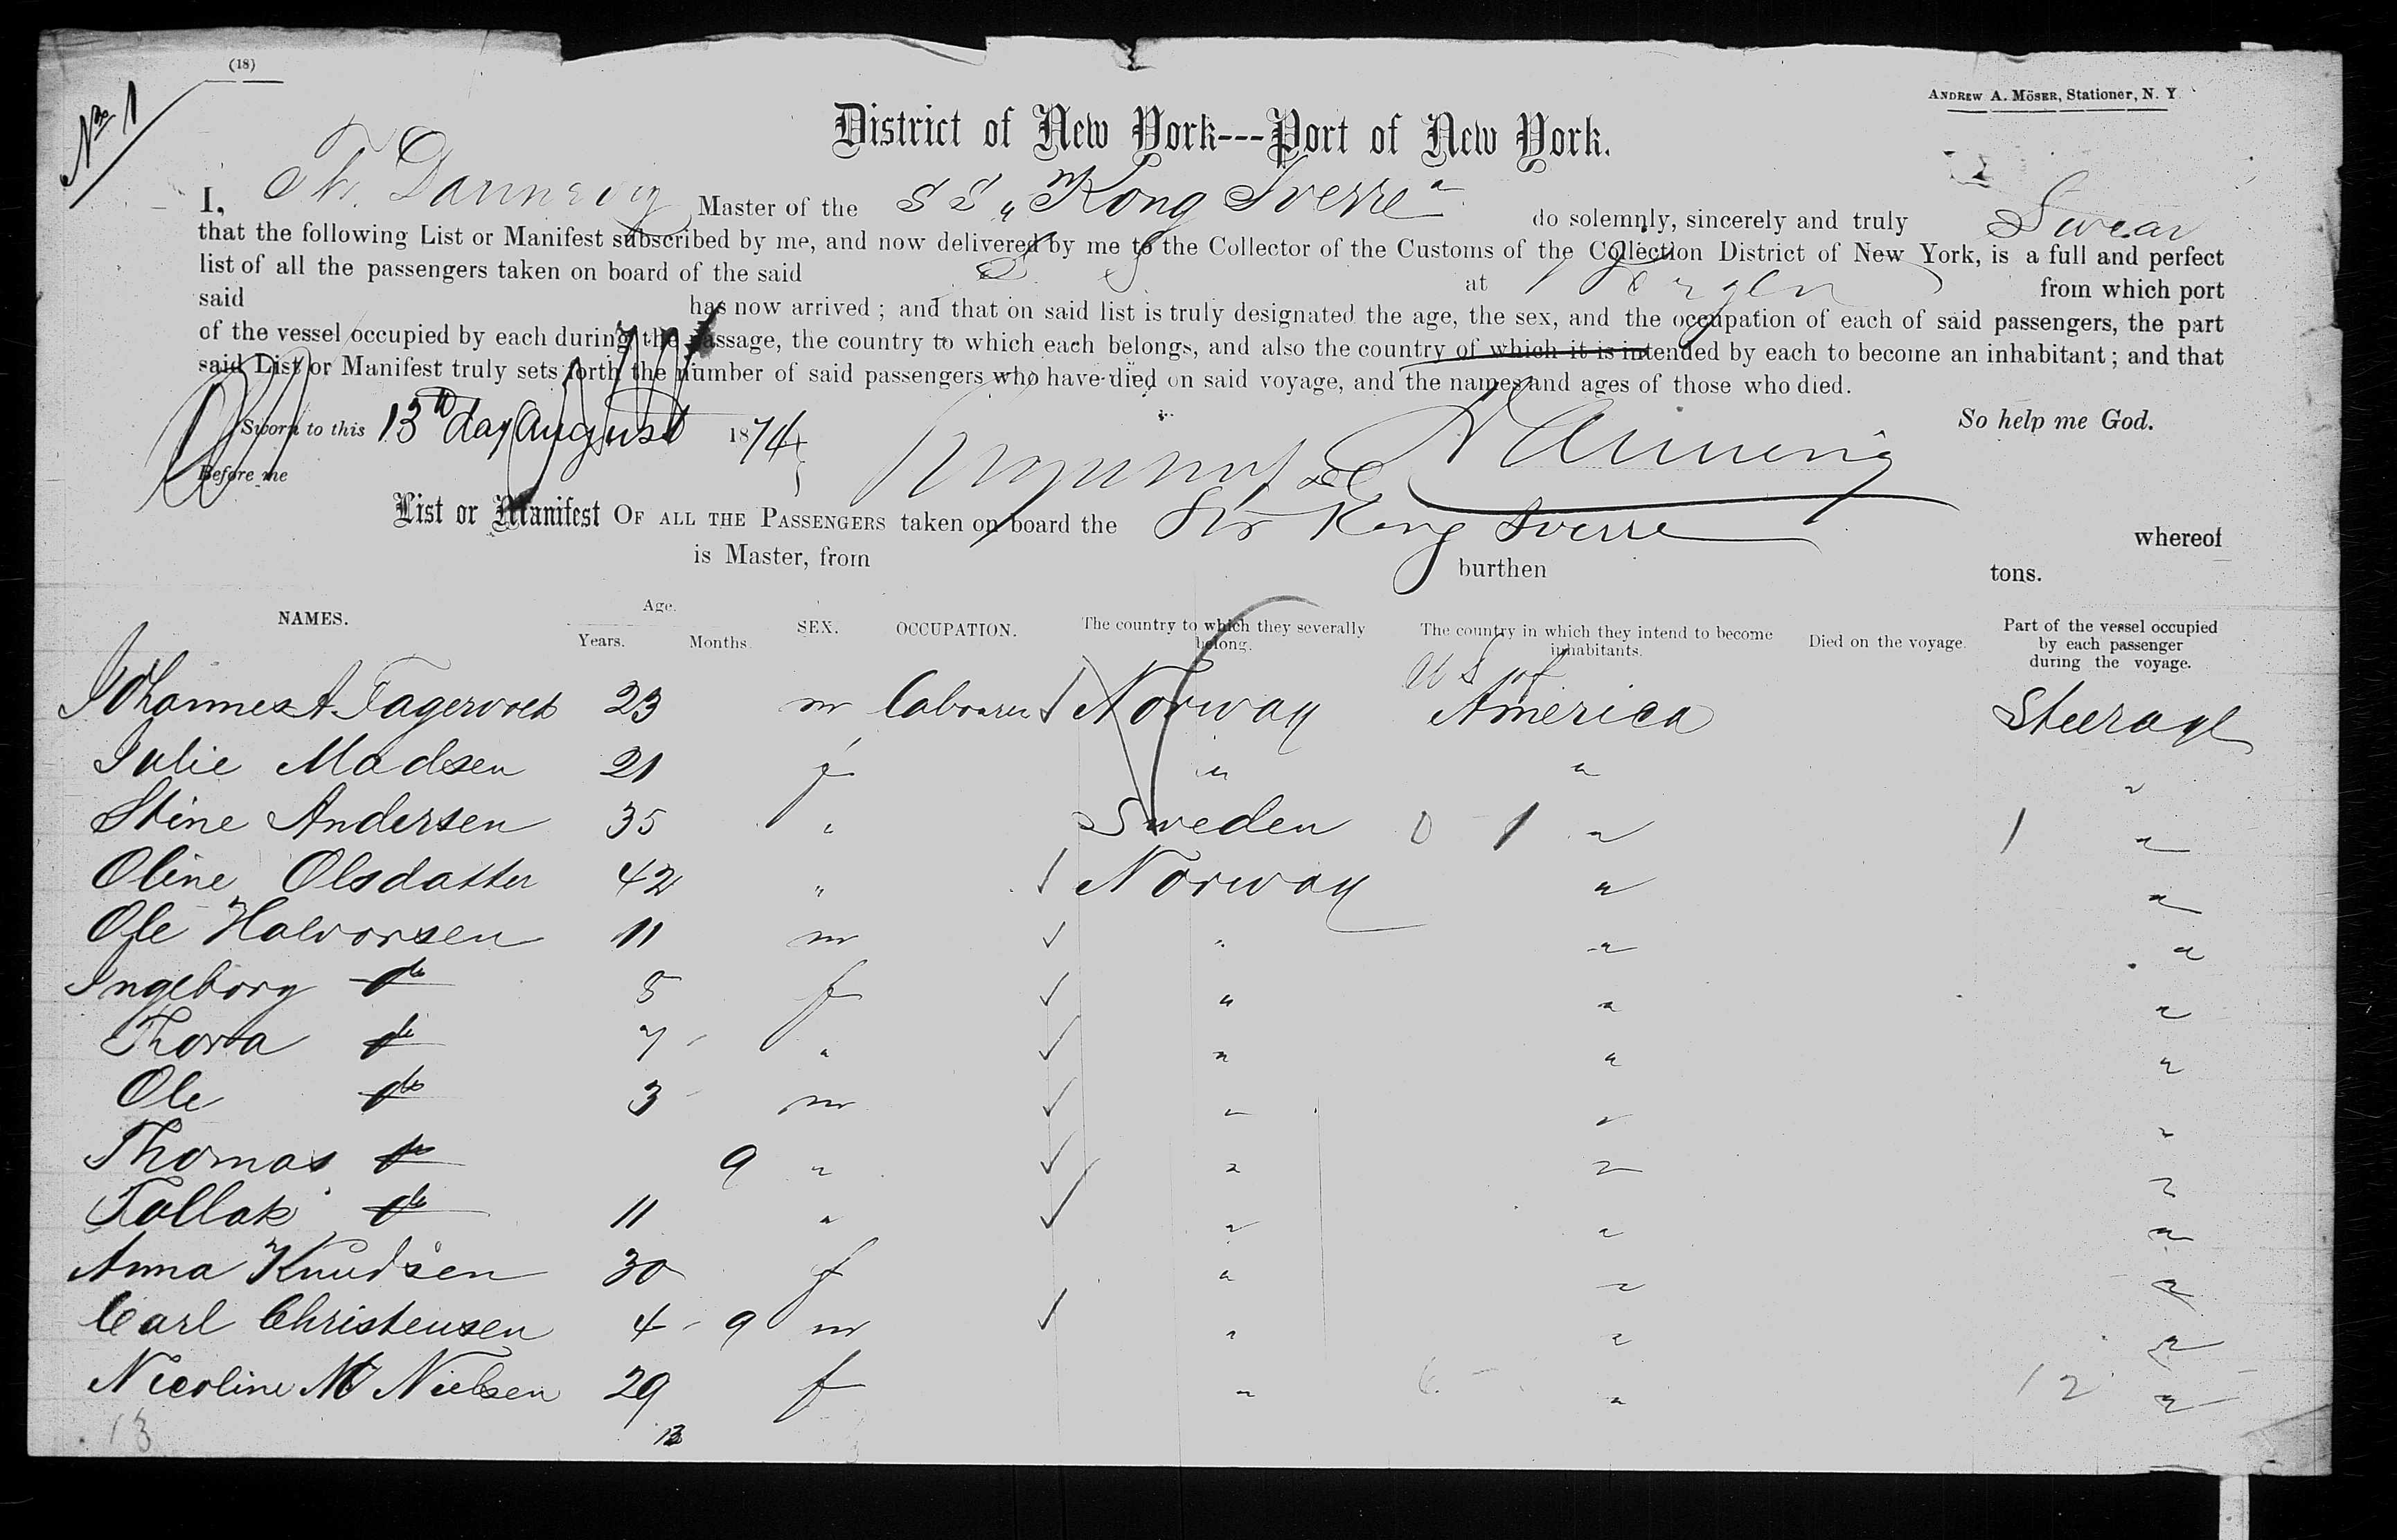 (18)
No 1
ANDREW A. MÖSER, Stationer, N. Y.
District of New York---Port of New York.
I, Th. Dannevig Master of the S S „Kong Sverre" do solemnly, sincerely and truly Swear
that the following List or Manifest subscribed by me, and now delivered by me to the Collector of the Customs of the Collection District of New York, is a full and perfect
list of all the passengers taken on board of the said S. S at Bergen from which port
said has now arrived ; and that on said list is truly designated the age, the sex, and the occupation of each of said passengers, the part
of the vessel occupied by each during the passage, the country to which each belongs, and also the country of which it is intended by each to become an inhabitant ; and that
said List or Manifest truly sets forth the number of said passengers who have died on said voyage, and the names and ages of those who died.
So help me God.
Sworn to this 13th day August 1874
Before me
Dannevig
List or Manifest OF ALL THE PASSENGERS taken on board the Str Kong Sverre whereof
is Master, from burthen tons.
NAMES. Age. Years. Months. SEX. OCCUPATION. The country to which they severally belong. The country in which they intend to become inhabitants. Died on the voyage. Part of the vessel occupied by each passenger during the voyage.
Johannes A. Fagervold 23 m Labourer Norway U S of America Steerage
Julie Madsen 21 f " " "
Stine Andersen 35 " Sweden 0 1 " 1 "
Oline Olsdatter 42 " Norway " "
Ole Halvorsen 11 m " " "
Ingeborg do 8 f " " "
Thora do 7 " " " "
Ole do 3 m " " "
Thomas do 9 " " " "
Tollak do 11 " " " "
Anna Knudsen 30 f " " "
Carl Christensen 4 - 9 m " " "
Nicoline M Nielsen 29 f " 6 " 12 "
13 13